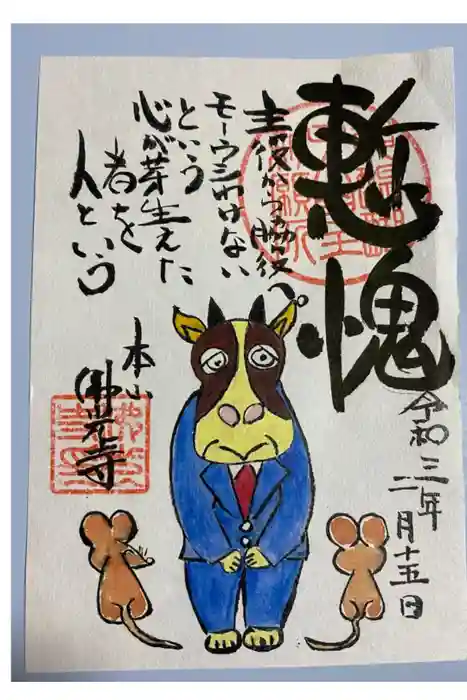 慙愧
主役から脇役へ。
モーウシわけない
という
心が芽生えた
者を
人という
本山
佛光寺
令和三年
二月十五日